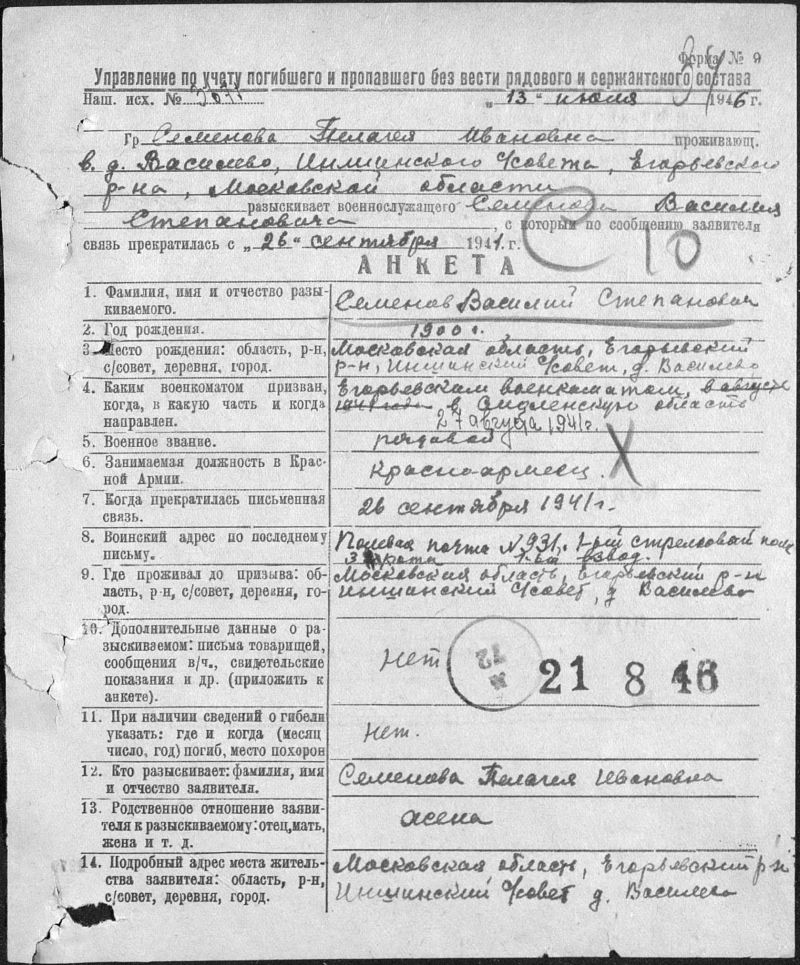 Форма № 9
Управление по учету погибшего и пропавшего без вести рядового и сержантского состава
Наш. исх. № „13“ июля 1946 г.
Гр Семенова Пелагея Ивановна проживающ.
в д. Василево, Иншинского с/совета, Егорьевского
р-на, Московской области
разыскивает военнослужащего Семенова Василия
Степановича, с которым по сообщению заявителя
связь прекратилась с „26“ сентября 1941 г.
С 10
АНКЕТА
1. Фамилия, имя и отчество разы-
скиваемого.
Семенов Василий Степанович
2. Год рождения.
1900 г.
3. Место рождения: область, р-н,
с/совет, деревня, город.
Московская область, Егорьевский
р-н, Иншинский с/совет, д. Василево
4. Каким военкоматом призван,
когда, в какую часть и когда
направлен.
Егорьевским военкоматом, в августе
1941 года в Смоленскую область
27 августа 1941г.
5. Военное звание.
рядовой
6. Занимаемая должность в Крас-
ной Армии.
Красно-армеец.
7. Когда прекратилась письменная
связь.
26 сентября 1941г.
8. Воинский адрес по последнему
письму.
Полевая почта № 931, стрелковый полк
3 рота взвод.
9. Где проживал до призыва: об-
ласть, р-н, с/совет, деревня, го-
род.
Московская область, Егорьевский р-н
Иншинский с/совет, д Василево
10. Дополнительные данные о ра-
зыскиваемом: письма товарищей,
сообщения в/ч., свидетельские
показания и др. (приложить к
анкете).
Нет
21 8 46
11. При наличии сведений о гибели
указать: где и когда (месяц
число, год) погиб, место похорон
Нет.
12. Кто разыскивает: фамилия, имя
и отчество заявителя.
Семенова Пелагея Ивановна
13. Родственное отношение заяви-
теля к разыскиваемому: отец, мать,
жена и т. д.
жена
14. Подробный адрес места житель-
ства заявителя: область, р-н,
с/совет, деревня, город.
Московская область, Егорьевский р-н
Иншинский с/совет д. Василево